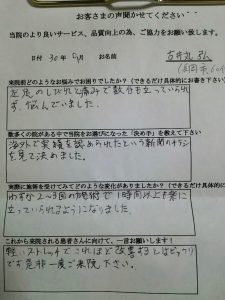 お客さまの声聞かせてください
当院のより良いサービス、品質向上の為、ご協力をお願い致します。
日付 30年 月 お名前
来院前どのようなお悩みでお困りでしたか？（できるだけ具体的にお書き下さい）
左足のしびれと痛みで数分も立っていられ
ず、悩んでいました。
数多くの院がある中で当院をお選びになった「決め手」を教えて下さい
海外で実績を認められたという新聞のチラシ
を見て決めました。
実際に施術を受けてみてどのような変化がありましたか？（できるだけ具体的に
わずか2〜3回の施術で1時間以上も楽に
立っていられるようになりました。
これから来院される患者さんに向けて、一言お願いします！
軽いストレッチでこれほど改善するとはビックリ
です是非一度ご来院下さい。